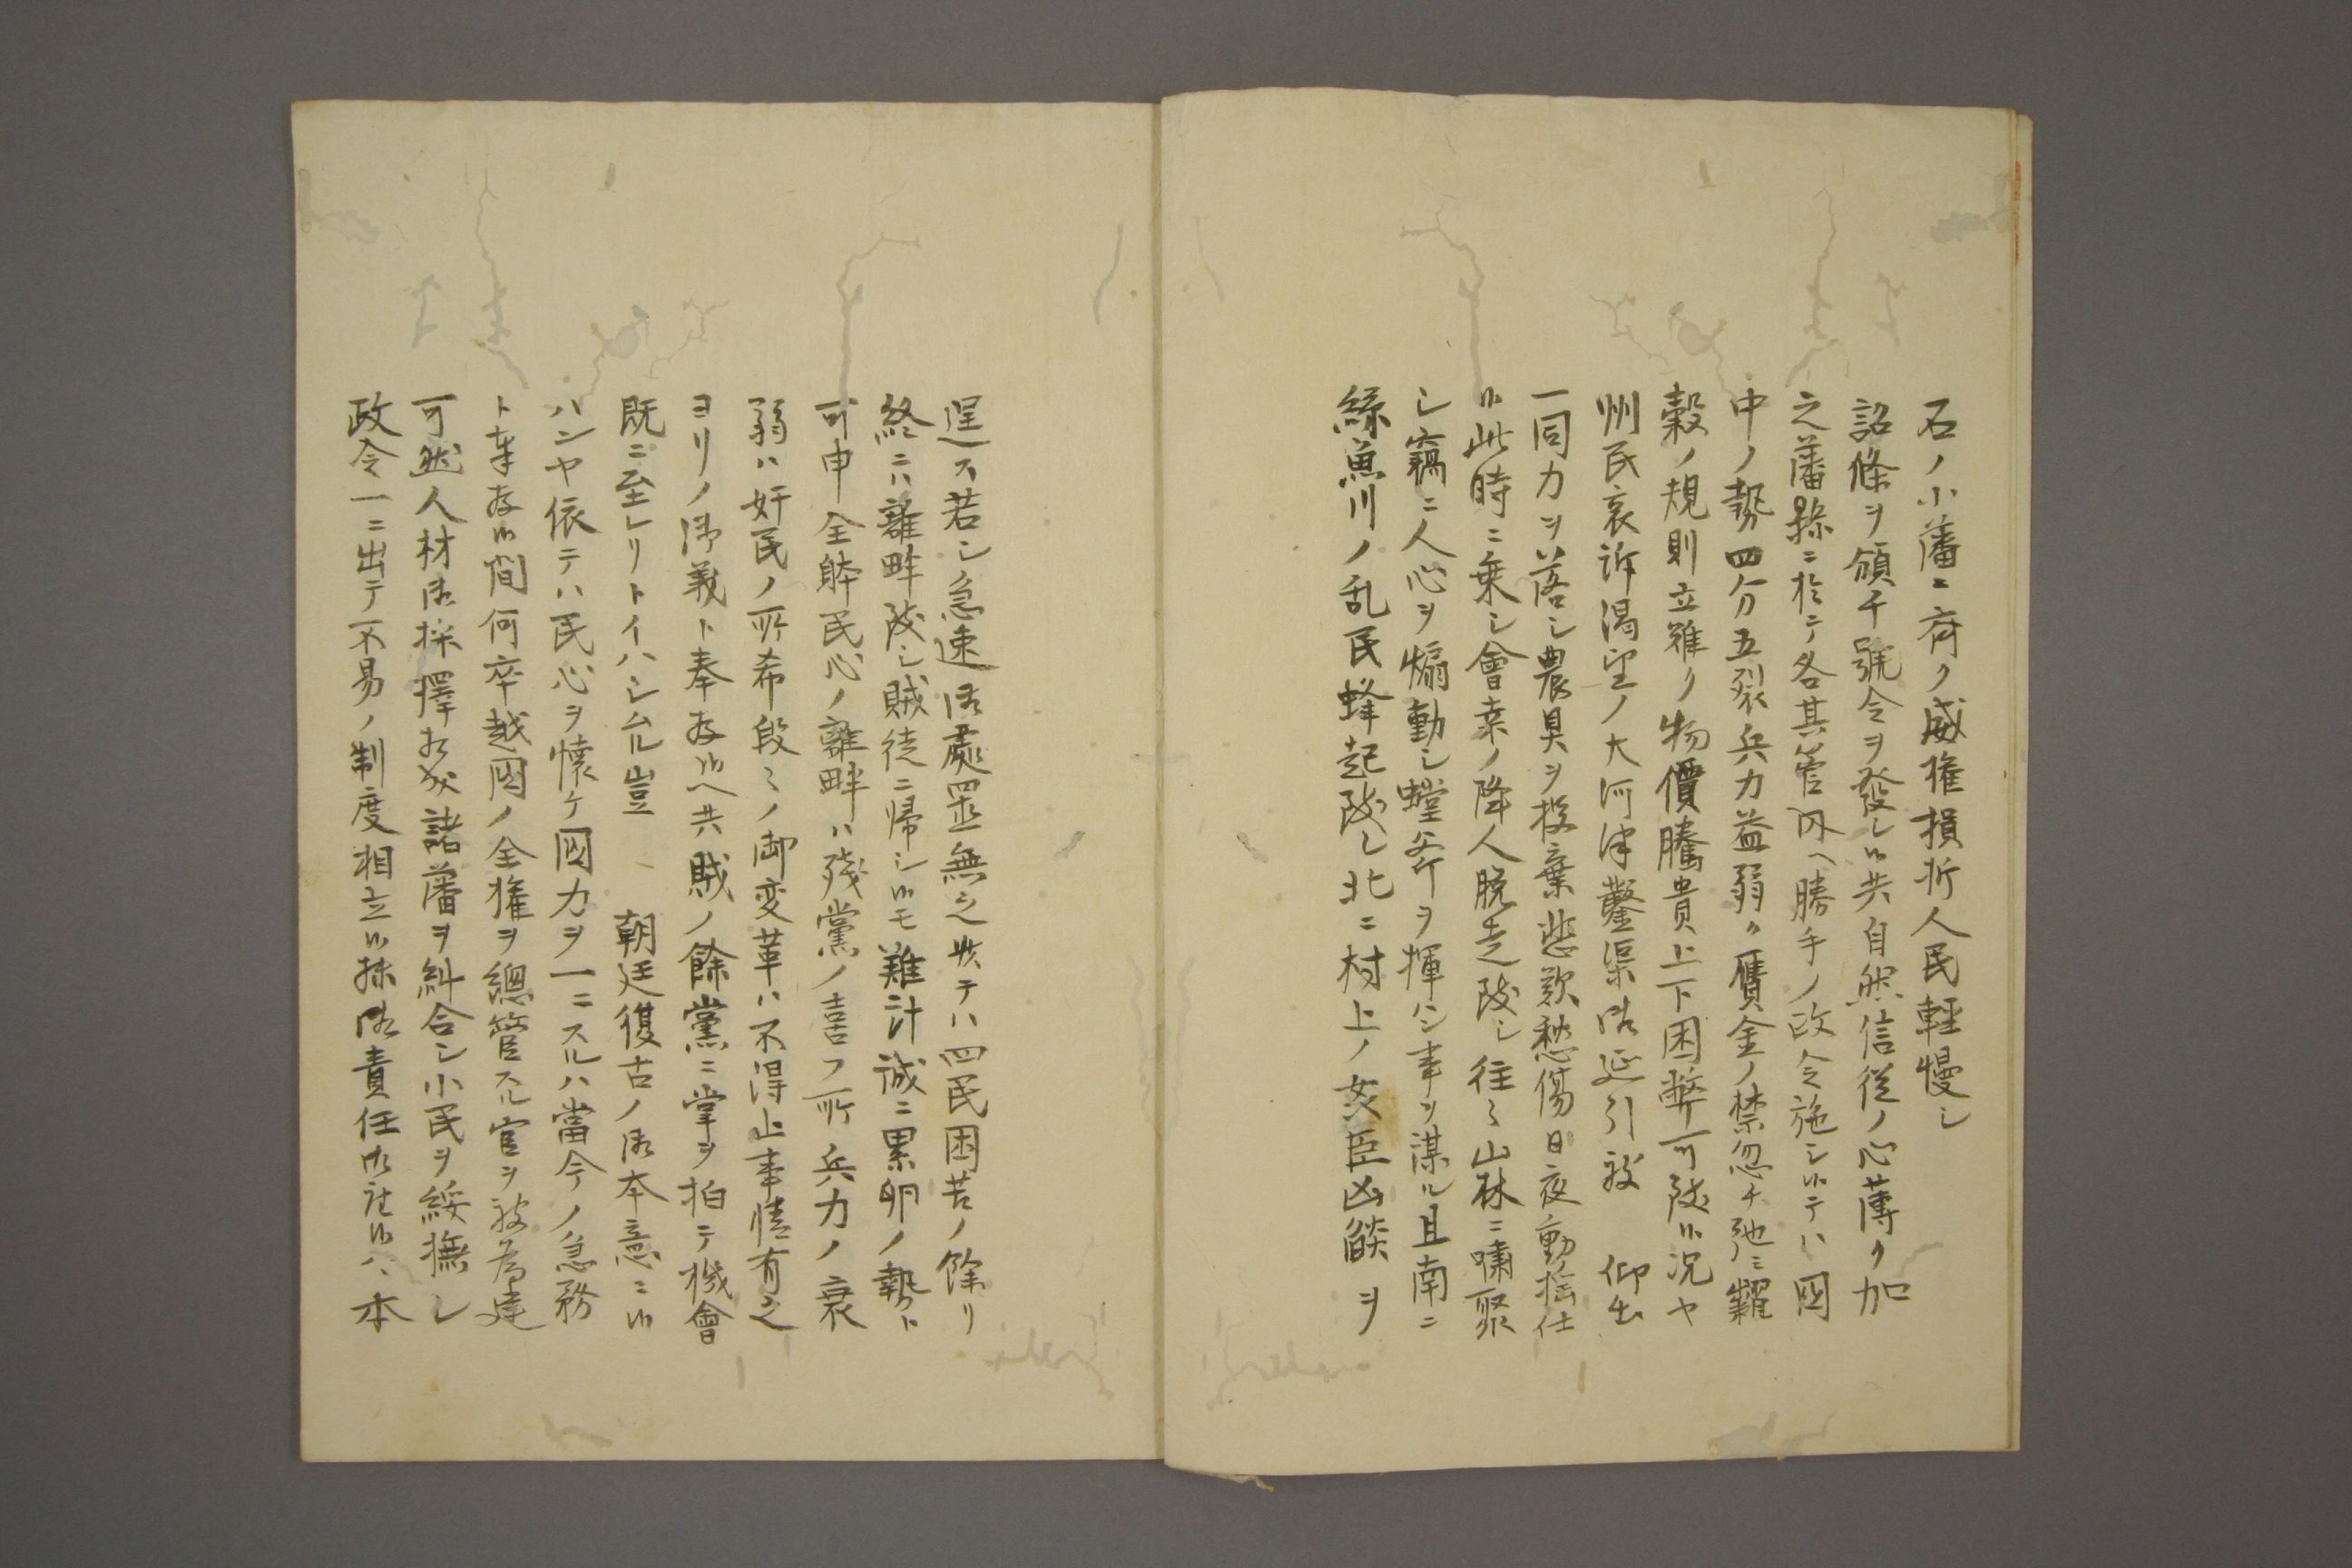 石ノ小藩ニ齊ク威権損折人民軽慢シ
詔條ヲ頒チ號令ヲ發シ候共自然信従ノ心薄ク加
之藩縣ニ於テ各其管内ヘ勝手ノ政令施シ候テハ国
中ノ勢四分五裂兵力益弱ク贋金ノ禁忽チ弛ミ糶
穀ノ規則立難ク物價騰貴上下困弊可致候況ヤ
州民哀訴渇望ノ大河津鑿渠御延引被　仰出
一同力ヲ落シ農具ヲ投棄悲歎愁傷日夜動揺仕
候此時ニ乗シ會桒ノ降人脱走致シ往々山林ニ嘯聚
シ竊ニ人心ヲ煽動シ螳斧ヲ揮ハン事ヲ謀ル且南ニ
糸魚川ノ乱民蜂起致シ北ニ村上ノ姦臣凶燄ヲ
逞ス若シ急速御處置無之候テハ四民困苦ノ餘リ
終ニハ離畔致シ賊徒ニ帰シ候モ難計誠ニ累卵ノ勢ト
可申全躰民心ノ離畔ハ残黨ノ喜フ所兵力ノ衰
弱ハ奸民ノ所希段々ノ御変革ハ不得止事情有之
ヨリノ御義ト奉存候ヘ共賊ノ餘黨ニ掌ヲ拍テ機會
既ニ至レリトイハシムル豈　朝廷復古ノ御本意ニ候
ハンヤ依テハ民心ヲ懐ケ国力ヲ一ニスルハ當今ノ急務
ト奉存候間何卒越国ノ全権ヲ總管スル官ヲ被為建
可然人材御採擇相成諸藩ヲ糾合シ小民ヲ綏撫シ
政令一ニ出テ不易ノ制度相立候様御責任御座候ハヽ本